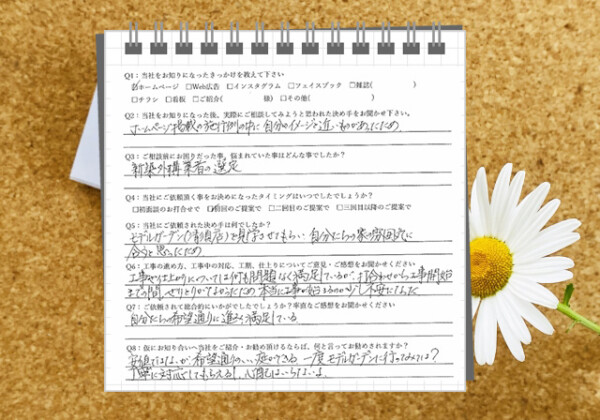 Q1：当社をお知りになったきっかけを教えて下さい
☑ホームページ □Web広告 □インスタグラム □フェイスブック □雑誌( )
□チラシ □看板 □ご紹介( 様) □その他( )
Q2：当社をお知りになった後、実際にご相談してみようと思われた決め手をお聞かせ下さい。
ホームページ掲載の施行例の中に自分のイメージに近いものがあったため
Q3：ご相談前にお困りだった事、悩まれていた事はどんな事でしたか？
新築外構業者の選定
Q4：当社にご依頼頂く事をお決めになったタイミングはいつでしたでしょうか？
□初面談のお打合せで ☑初回のご提案で □二回目のご提案で □三回目以降のご提案で
Q5：当社にご依頼された決め手は何でしたか？
モデルガーデン( 店)を見学させてもらい、自分たちの家の雰囲気に
合うと思ったため
Q6：工事の進め方、工事中の対応、工期、仕上りについてご意見・ご感想をお聞かせください
工事や仕上がりについては何も問題なく満足しているが、打合わせから工事開始
までの間、やりとりがなかったため本当に工事が始まるのか少し不安になった
Q7：ご依頼されて総合的にいかがでしたでしょうか？率直なご感想をお聞かせください
自分たちの希望通りに進み満足している
Q8：仮にお知り合いへ当社をご紹介・お勧め頂けるならば、何と言ってお勧めされますか？
安価ではないが希望通りのいい庭ができる。一度モデルガーデンに行ってみては？
丁寧に対応してもらえるし、心配はいらないよ。